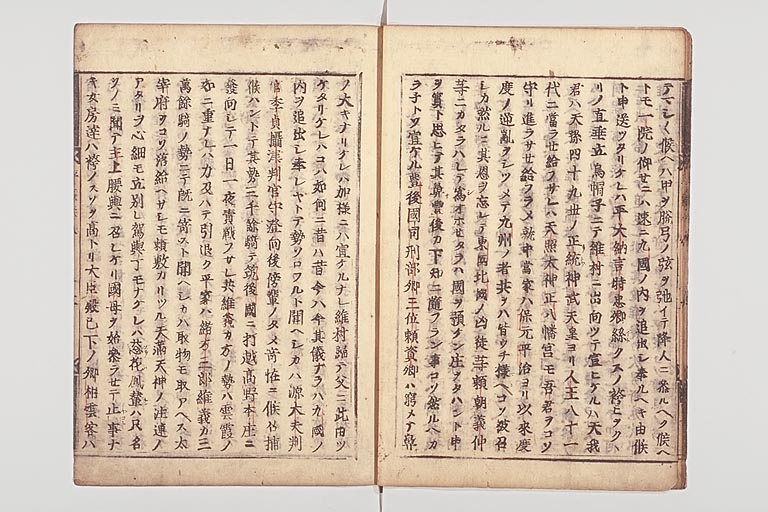 アマシク候ヘハ甲ヲ脱弓ノ弦ヲ弛イテ降人ニ参ルヘク候ヘ
トモ一院ノ仰せニハ速ニ九國ノ内ヲ追出シ奉ルヘキ由候
ト申送ツタリケレハ平大納言時忠卿絲クスノ袴ヒタクハ
リノ直垂立烏帽子ニテ維村ニ出向ツテ宣ヒケルハ夫我
君ハ天孫四十九世ノ正統神武天皇ヨリ人王八十一
代ニ當ラせ給フサレハ天照太神正八幡宮モ吾君ヲコソ
守リ進ラサせ給フラメ就中當家ハ保元平治ヨリ以來度
度ノ逆亂ヲシツメテ九州ノ者共ヲハ皆ウチ様ヘコソ被召
シカ然ルニ其恩ヲ忘レテ東國北國ノ凶徒等頼朝義仲
等ニカタラハレテ為オホせタラハ國ヲ預ケン庄ヲタハント申
ヲ實ト思ヒテ其鼻豊後カ下知ニ随フラン事コソ然ルヘカ
ラ子トソ宣ケル豊後國司刑部卿三位頼資卿ハ窮メテ鼻
ノ大キナリケレハ加様ニハ宣ケルナレ維村歸テ父ニ此由ヲ
ケタリケレハコハ如何ニ昔ハ昔今ハ今其儀ナラハ九國ノ
内ヲ追出シ奉レヤトテ勢ソロフルト聞ヘシカハ源大夫判
官季貞攝津判官守澄向後傍輩ノタメ奇恠ニ候召捕
候ハントテ其勢三千餘騎テ筑後國ニ打越高野本庄ニ
發向シテ一日一夜責戰フサレ共維義カ方ノ勢ハ雲霞ノ
如ニ重ナレハ力及ハテ引退ク平家ハ緒方三郎維義カ三
萬餘騎ノ勢ニテ既ニ寄スト聞ヘシカハ取物モ取アヘス太
宰府ヲコソ落給ヘサシモ頼敷カリツル天満天神ノ注連ノ
アタリヲ心細モ立別レ駕輿丁モナケレハ葱花鳳輦ハ只名
ヲノミ聞テ主上腰輿ニ召レケリ國母ヲ始奉ラせテ止事ナ
キ女房達ハ袴ノスソヲ高トリ大臣殿已下ノ卿相雲客ハ